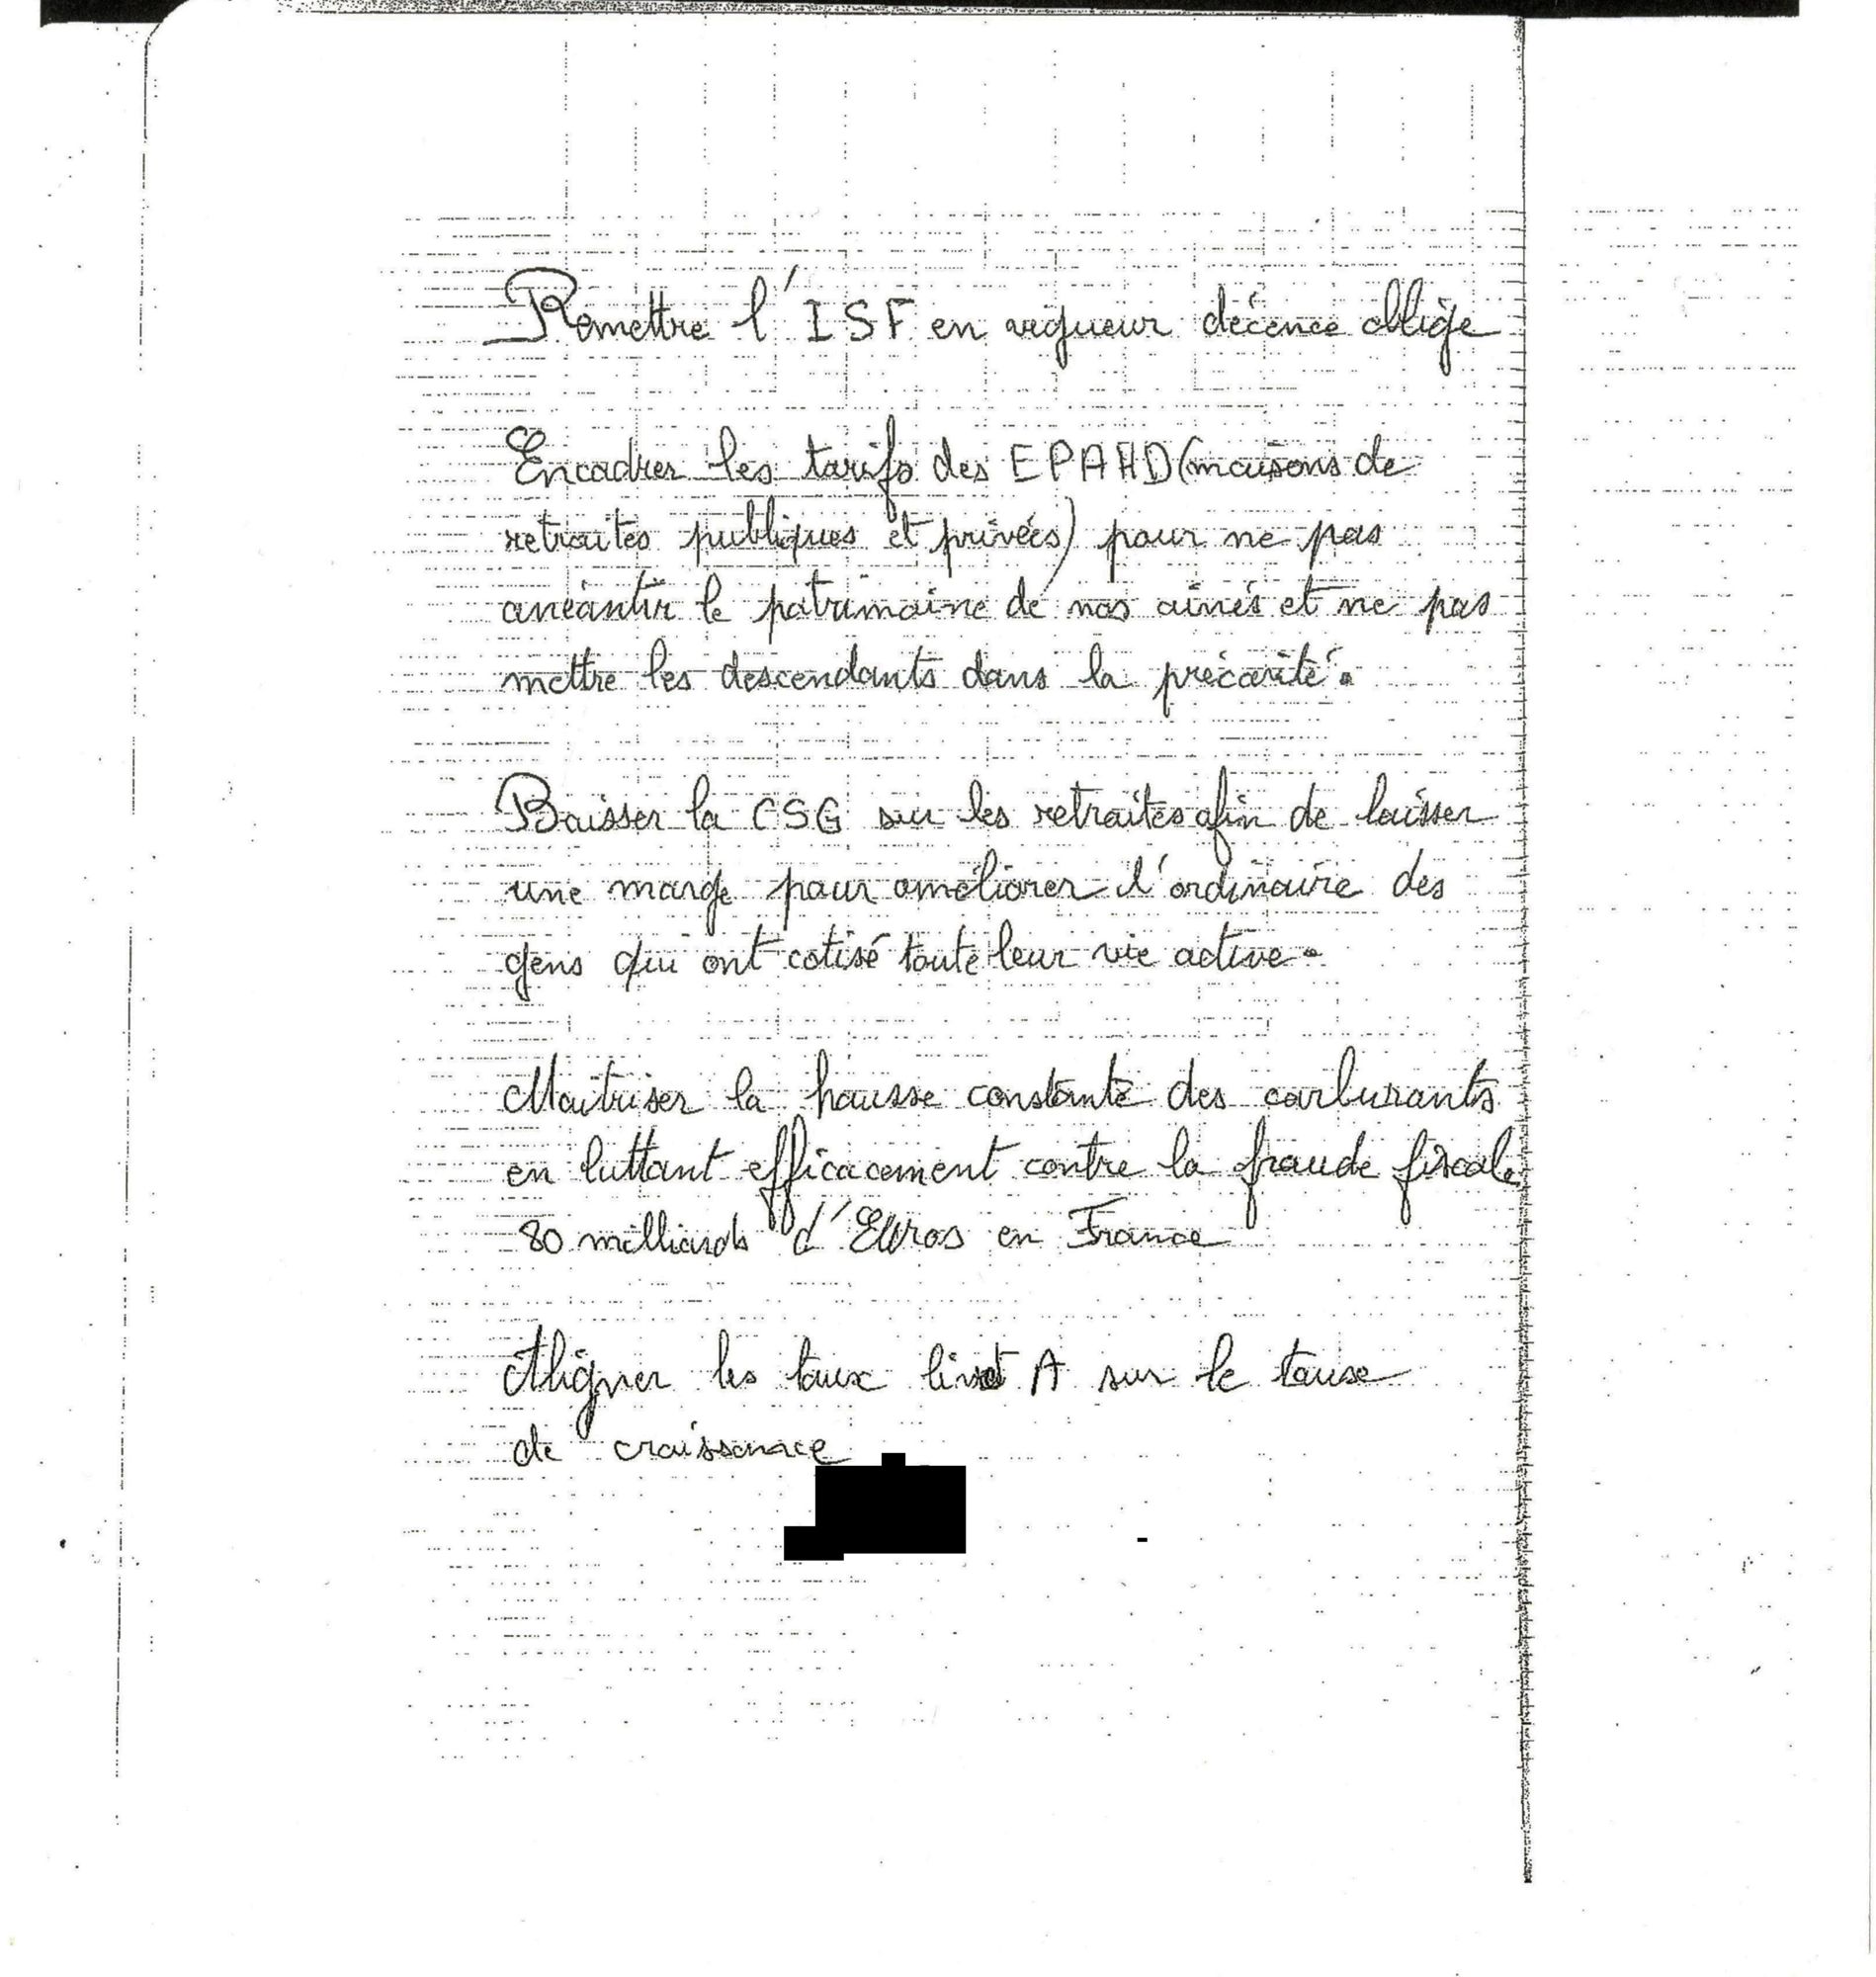 Remettre l'ISF en vigueur décence oblige
Encadrer les tarifs des EPAHD (maisons de
retraites publiques et privées) pour ne pas
anéantir le patrimoine de nos ainés et ne pas
mettre les descendants dans la précarité.
Baisser la CSG sur les retraites afin de laisser
une marge pour améliorer l'ordinaire des
gens qui ont cotisé toute leur vie active.
Maitriser la hausse constante des carburants
en luttant efficacement contre la fraude fiscale
80 milliards d'Euros en France
Aligner les taux livret A sur le taux
de croissance